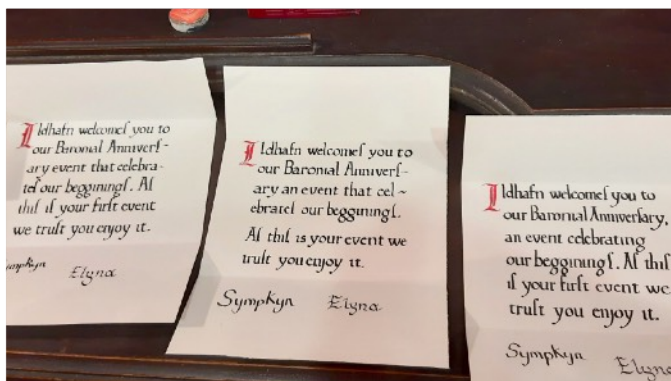 Ildhafn welcomes you to
our Baronial Annivers-
ary event that celebra-
tes our begginings. As
this is your first event
we trust you enjoy it.
Sympkyn Elyna
Ildhafn welcomes you to
our Baronial Annivers-
ary an event that cel-
ebrates our beggnings.
As this is your event we
trust you enjoy it.
Sympkyn Elyna
Ildhafn welcomes you to
our Baronial Anniversary,
an event celebrating
our beggnings. As this
is your first event we
trust you enjoy it.
Sympkyn Elyna